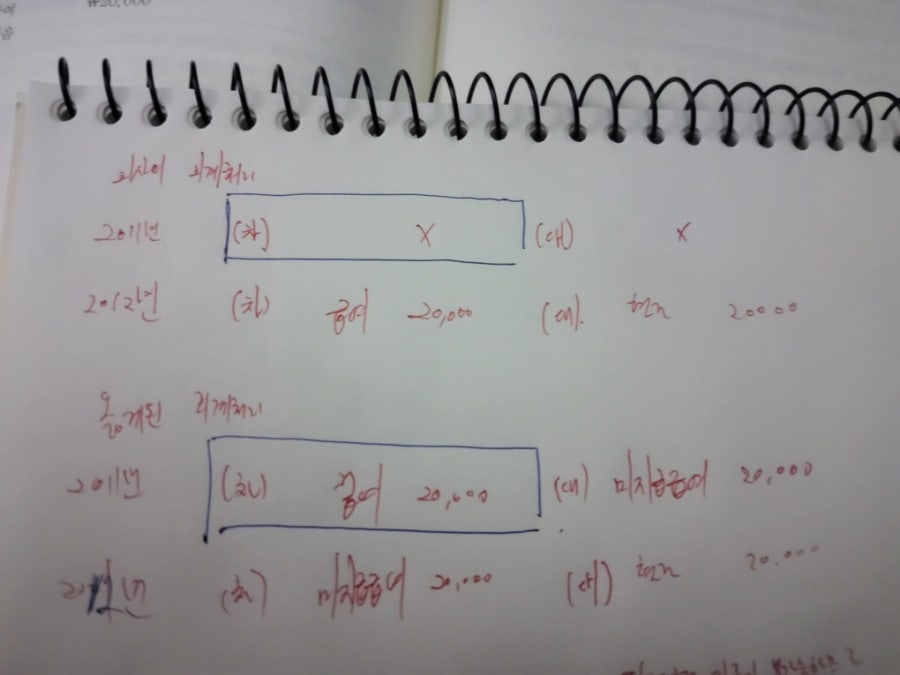 ₩20,000
회사의 회계처리
2011년 (차) X (대) X
2012년 (차) 급여 20,000 (대) 현금 20000
옳게된 회계처리
2011년 (차) 급여 20,000 (대) 미지급급여 20,000
(차) 미지급급여 20,000 (대) 현금 20.000